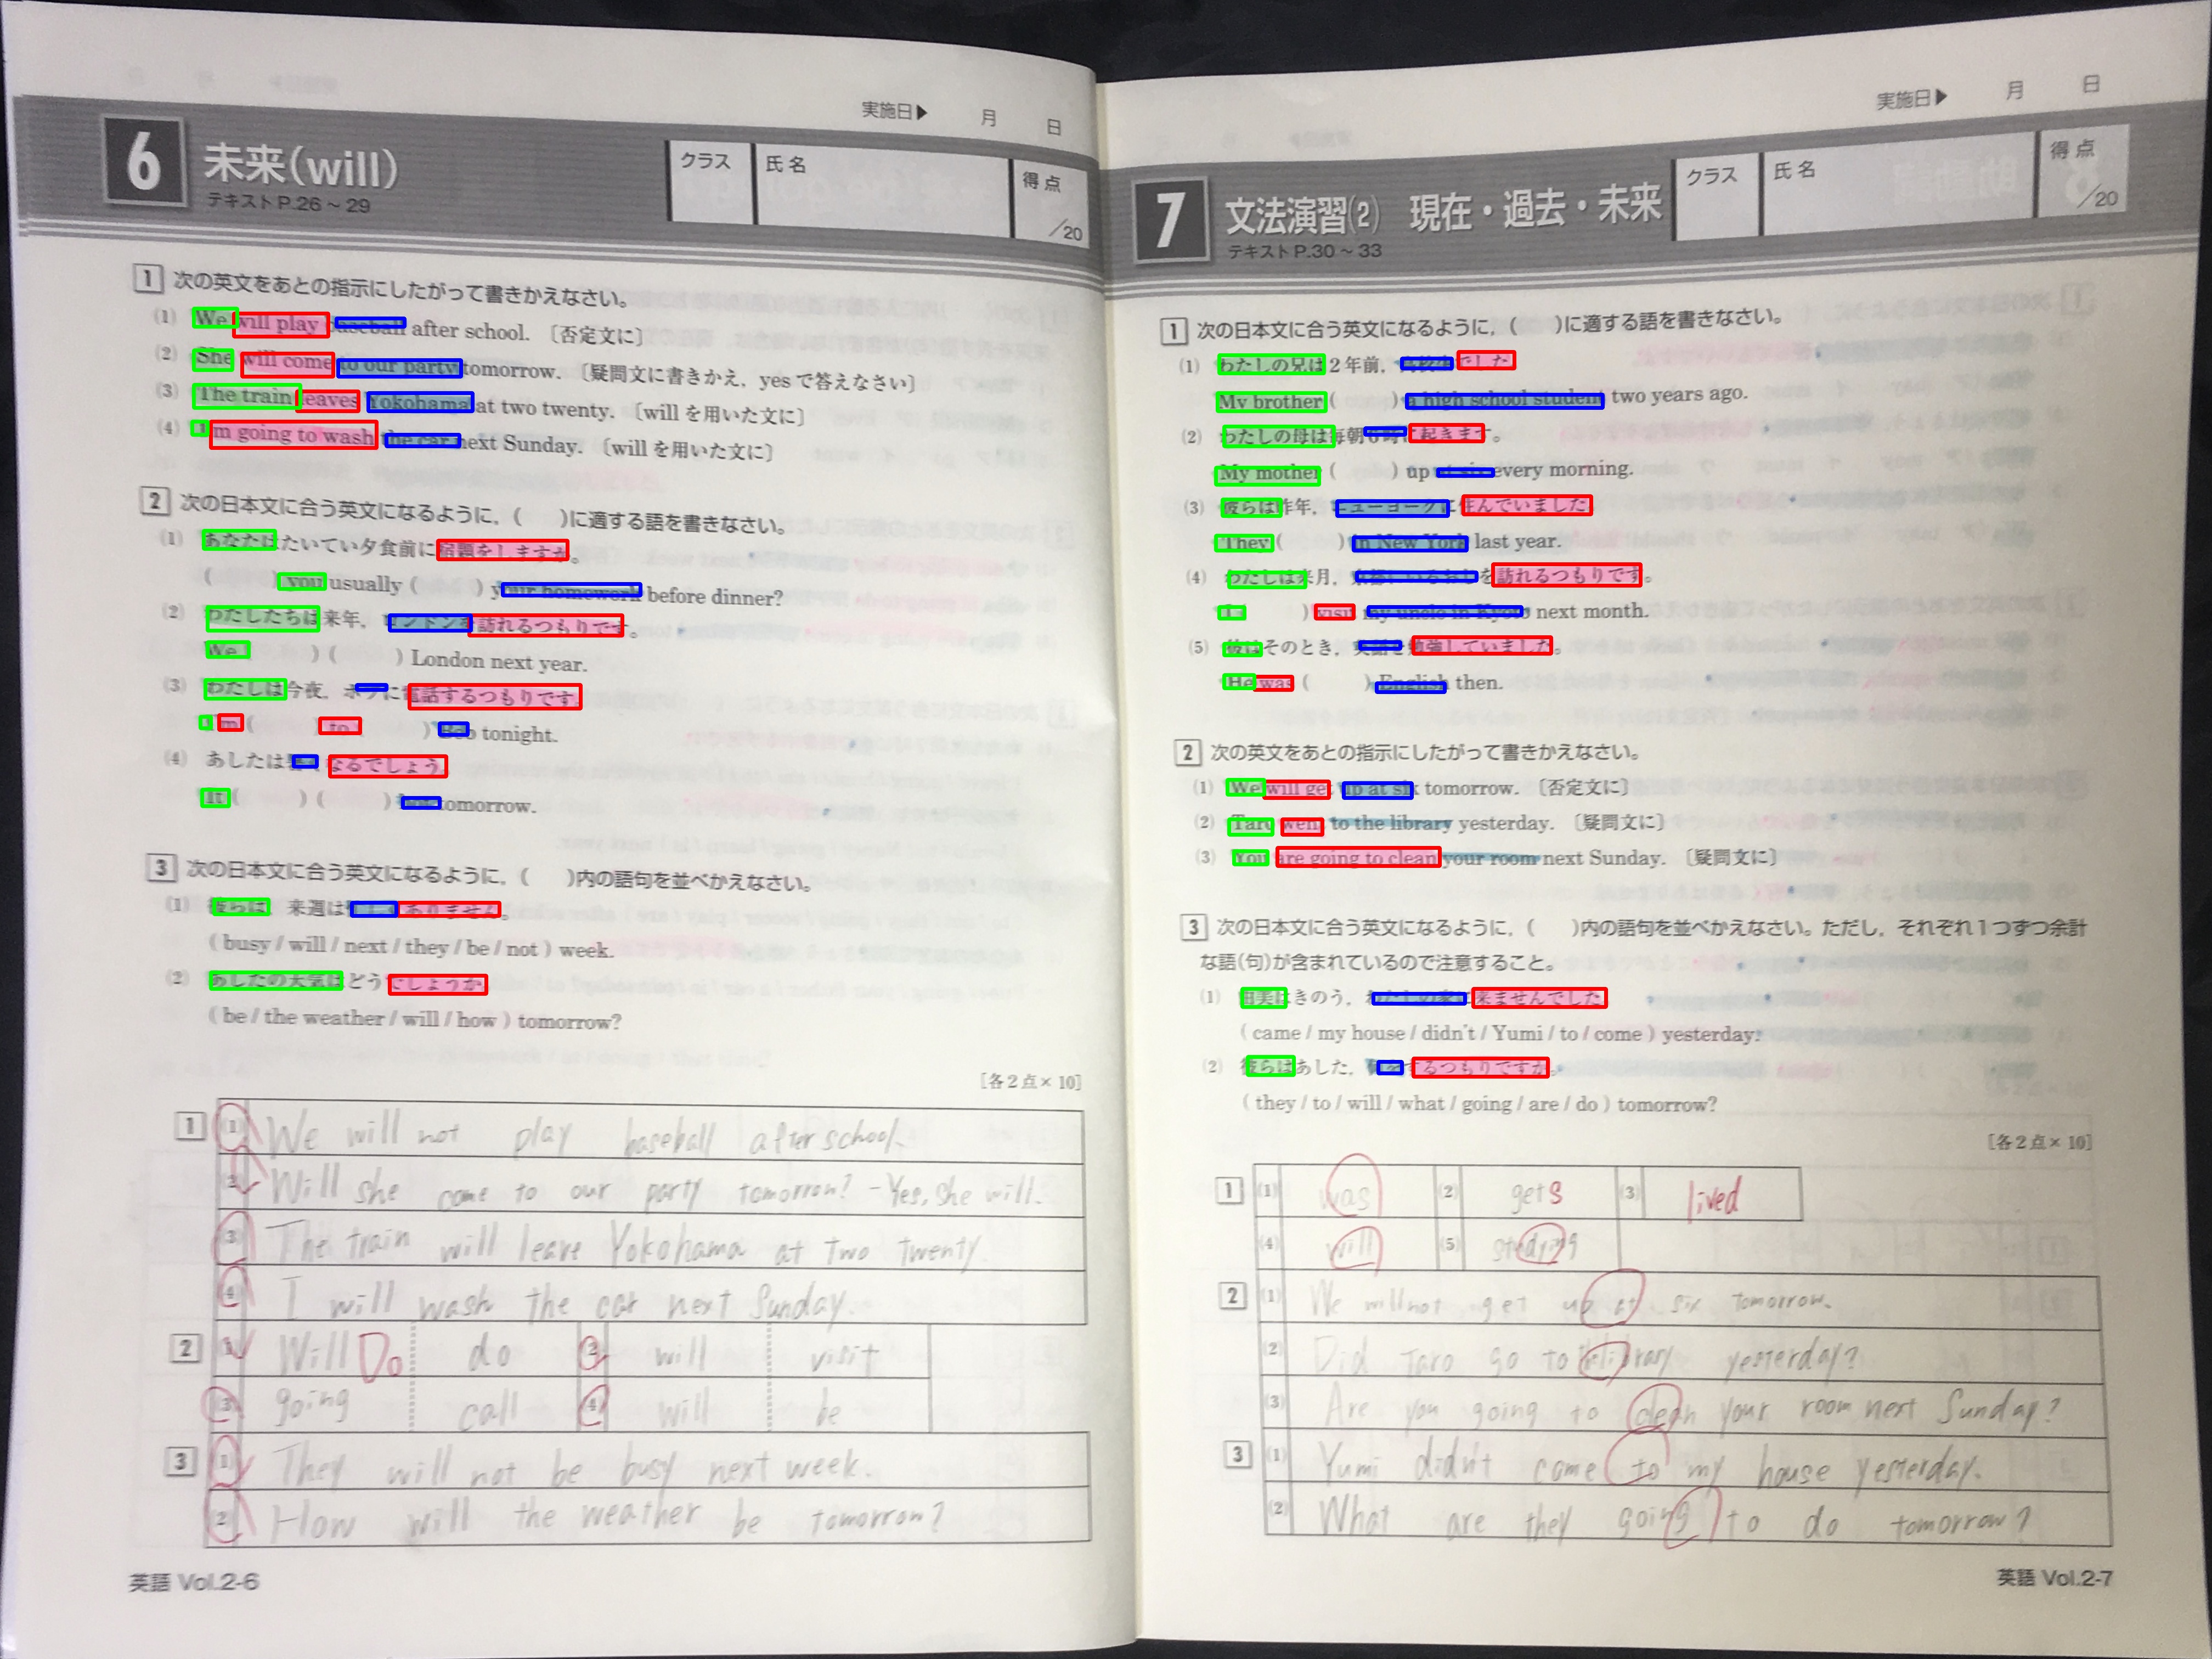 実施日▶ 月 日
6 未来(will)
テキストP.26～29
クラス 氏名 得点 /20
1 次の英文をあとの指示にしたがって書きかえなさい。
(1) We will play baseball after school. 〔否定文に〕
(2) She will come to our party tomorrow. 〔疑問文に書きかえ，yesで答えなさい〕
(3) The train leaves Yokohama at two twenty. 〔willを用いた文に〕
(4) I'm going to wash the car next Sunday. 〔willを用いた文に〕
2 次の日本文に合う英文になるように，( )に適する語を書きなさい。
(1) あなたはたいてい夕食前に宿題をしますか。
( ) you usually ( ) your homework before dinner?
(2) わたしたちは来年，ロンドンを訪れるつもりです。
We ( ) ( ) London next year.
(3) わたしは今夜，ボブに電話するつもりです。
I'm ( ) to ( ) Bob tonight.
(4) あしたは暑くなるでしょう。
It ( ) ( ) hot tomorrow.
3 次の日本文に合う英文になるように，( )内の語句を並べかえなさい。
(1) 彼らは，来週は忙しくありません。
( busy / will / next / they / be / not ) week.
(2) あしたの天気はどうでしょうか。
( be / the weather / will / how ) tomorrow?
[各2点×10]
1 (1) We will not play baseball after school.
(2) Will she come to our party tomorrow? - Yes, she will.
(3) The train will leave Yokohama at two twenty.
(4) I will wash the car next Sunday.
2 (1) Will Do do (2) will visit
(3) going call (4) will be
3 (1) They will not be busy next week.
(2) How will the weather be tomorrow?
英語 Vol.2-6
実施日▶ 月 日
7 文法演習(2) 現在・過去・未来
テキストP.30～33
クラス 氏名 得点 /20
1 次の日本文に合う英文になるように，( )に適する語を書きなさい。
(1) わたしの兄は2年前，高校生でした。
My brother ( ) a high school student two years ago.
(2) わたしの母は毎朝6時に起きます。
My mother ( ) up at six every morning.
(3) 彼らは昨年，ニューヨークに住んでいました。
They ( ) in New York last year.
(4) わたしは来月，京都にいるおじを訪れるつもりです。
I ( ) visit my uncle in Kyoto next month.
(5) 彼はそのとき，英語を勉強していました。
He was ( ) English then.
2 次の英文をあとの指示にしたがって書きかえなさい。
(1) We will get up at six tomorrow. 〔否定文に〕
(2) Taro went to the library yesterday. 〔疑問文に〕
(3) You are going to clean your room next Sunday. 〔疑問文に〕
3 次の日本文に合う英文になるように，( )内の語句を並べかえなさい。ただし，それぞれ1つずつ余計
な語(句)が含まれているので注意すること。
(1) 由美はきのう，わたしの家に来ませんでした。
( came / my house / didn't / Yumi / to / come ) yesterday.
(2) 彼らはあした，何をするつもりですか。
( they / to / will / what / going / are / do ) tomorrow?
[各2点×10]
1 (1) was (2) gets (3) lived
(4) will (5) studing
2 (1) We will not get up at six tomorrow.
(2) Did Taro go to library yesterday?
(3) Are you going to clean your room next Sunday?
3 (1) Yumi didn't come to my house yesterday.
(2) What are they going to do tomorrow?
英語 Vol.2-7